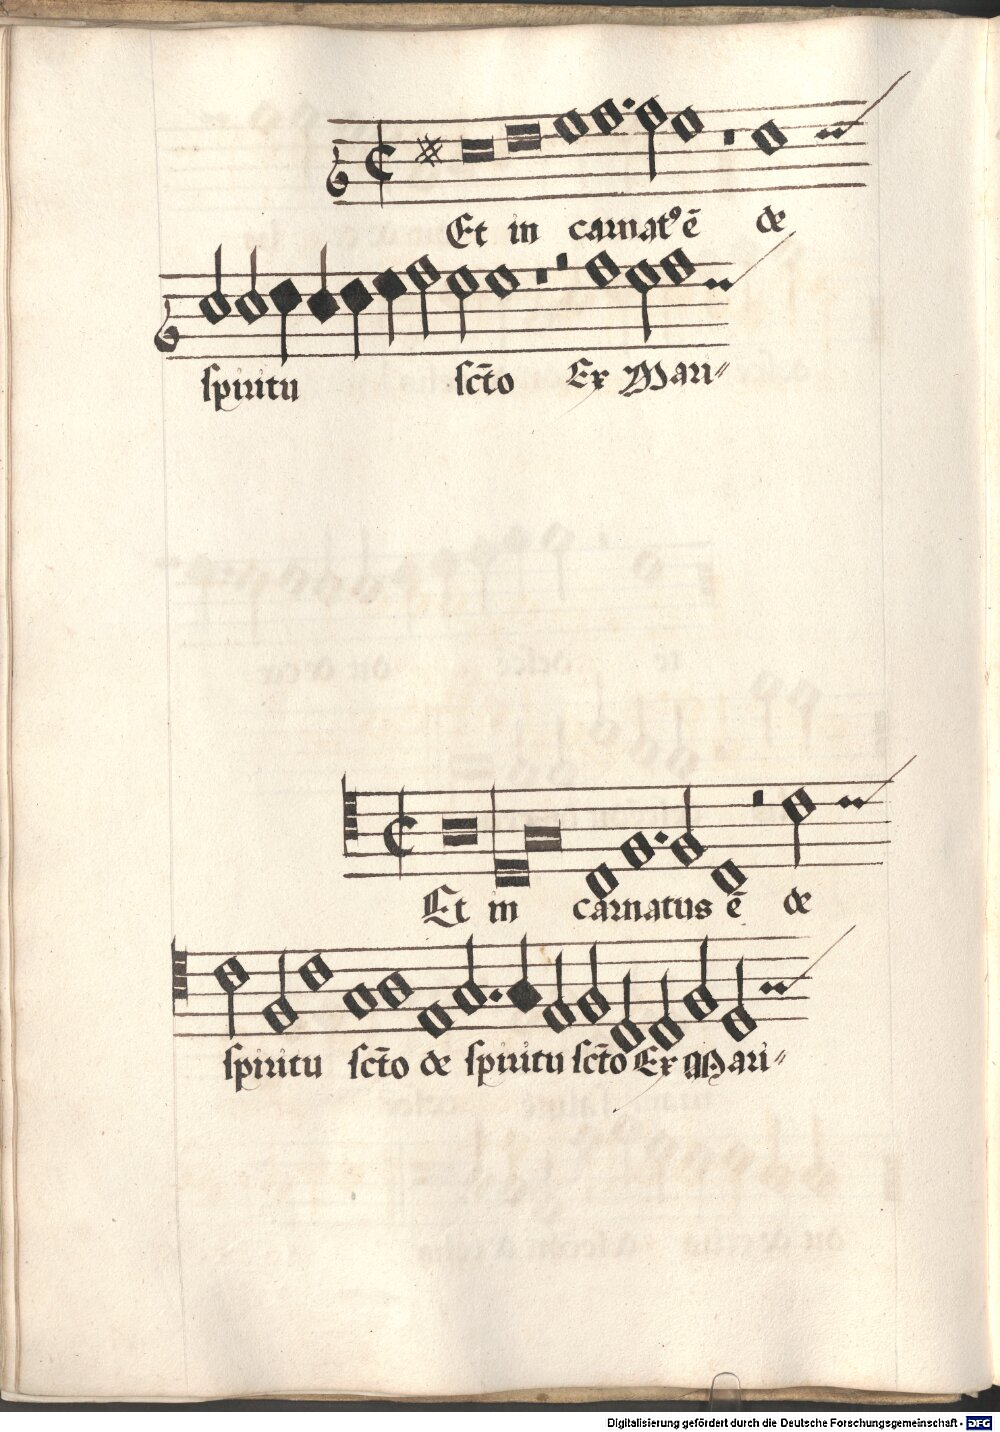 Et in carnatꝰ ē de
spiritu scто Ex Mari〃
Et in carnatus ē de
spiritu sct̄o de spiritu sct̄o Ex Mari〃
Digitalisierung gefördert durch die Deutsche Forschungsgemeinschaft - DFG